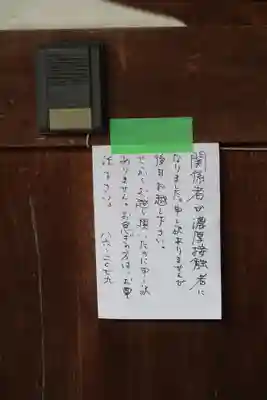 関係者が濃厚接触者に
なりました。申し訳ありませんが
後日お越し下さい。
せっかくお越し頂いたのに申し訳
ありません。お急ぎの方は、お電
話下さい。 八六-二〇七九